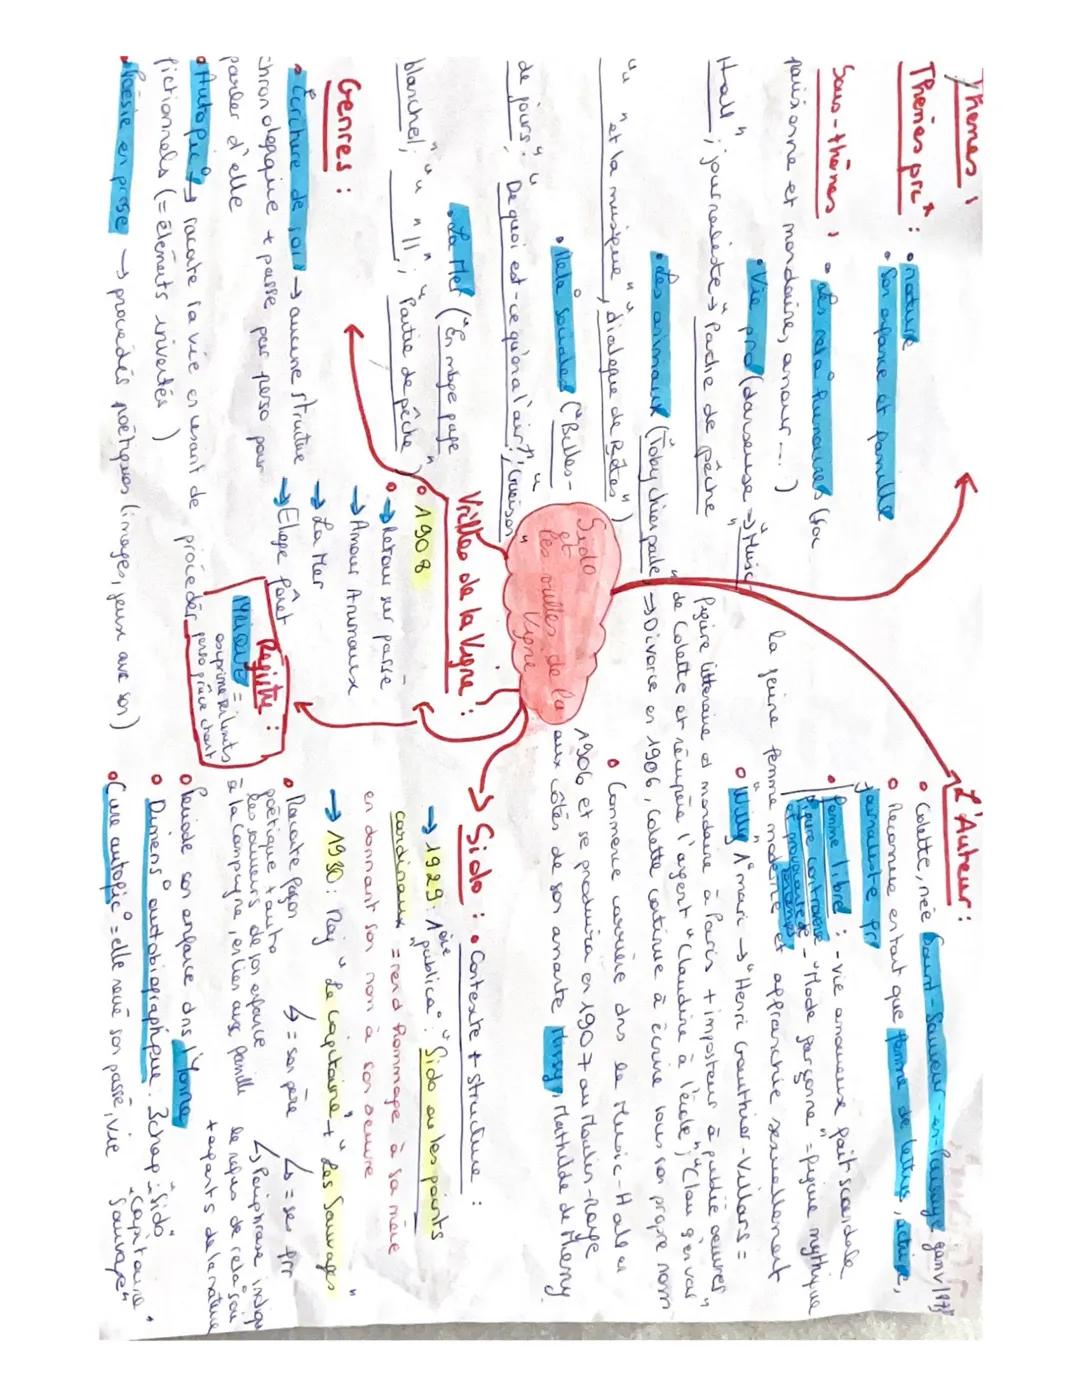 Thèmes :
Thèmes prc* :
• nature
• son enfance et famille
Sous-thèmes :
• les relat° humaines (tou
paris enne et mondaine, amour ... )
• Vie pro (danseuse → "Music
Hall", journaliste → "Partie de pêche"
• Les animaux ("Toby chien parle"
" " et la musique", "dialogue de Bêtes")
• Relat° sociales ("Belles-
de jours", "De quoi est-ce qu'on a l'air", "Guérison"
• La Mer ("En baie
blanche", " " II", "Partie de pêche")
Genres :
• Ecriture de soi → aucune structure
chronologique + passe par perso pour
parler d'elle
• Autofic° → raconte la vie en usant de procédés
fictionnels (= éléments inventés)
• Poésie en prose → procédés poétiques (images, jeux avec son)
Sido
et
les vrilles de la
Vigne
Vrilles de la Vigne :
• 1908
• → Retour sur passé
→ Amour Animaux
→ La Mer
→ Eloge forêt
Registre :
lyrique = exprime
perso grâce chant
L'Auteur :
• Colette, née Saint-Sauveur-en-Puisaye
• Reconnue en tant que femme de lettres, actrice,
journaliste
• Femme libre : - vie amoureuse fait scandale
Figure controversée
et provocante
- "Mode garçonne" = figure mythique
la jeune femme moderne et affranchie sexuellement
• "Willy" 1er mari → "Henri Gauthier-Villars =
Figure littéraire et mondaine à Paris + imposteur à publié oeuvres
de Colette et récupère l'argent "Claudine à l'école", "Clau s'en va"
→ Divorce en 1906, Colette continue à écrire sous son propre nom
• Commence carrière dns le Music-Hall en
1906 et se produira en 1907 au Moulin-Rouge
aux côtés de son amante Missy, Mathilde de Morny
→ Sido : • Contexte + structure :
→ 1929 : 1ère publica° : "Sido ou les points
cardinaux" = rend hommage à sa mère
en donnant son nom à son oeuvre
→ 1930 : Raj "Le Capitaine" + "Les Sauvages"
↳ = son père
↳ = ses frr
• Raconte façon
poétique + auto
les souvenirs de son enfance
à la campagne, en lien avec famille
↳ Périphrase
le refus de relat° sou
+ apports de la nature
• Période son enfance dns l'Yonne
• Dimens° autobiographique. 3 chap : "Sido"
"Capitaine"
"Sauvage"
• Cure autofic° = elle revit son passé, vie